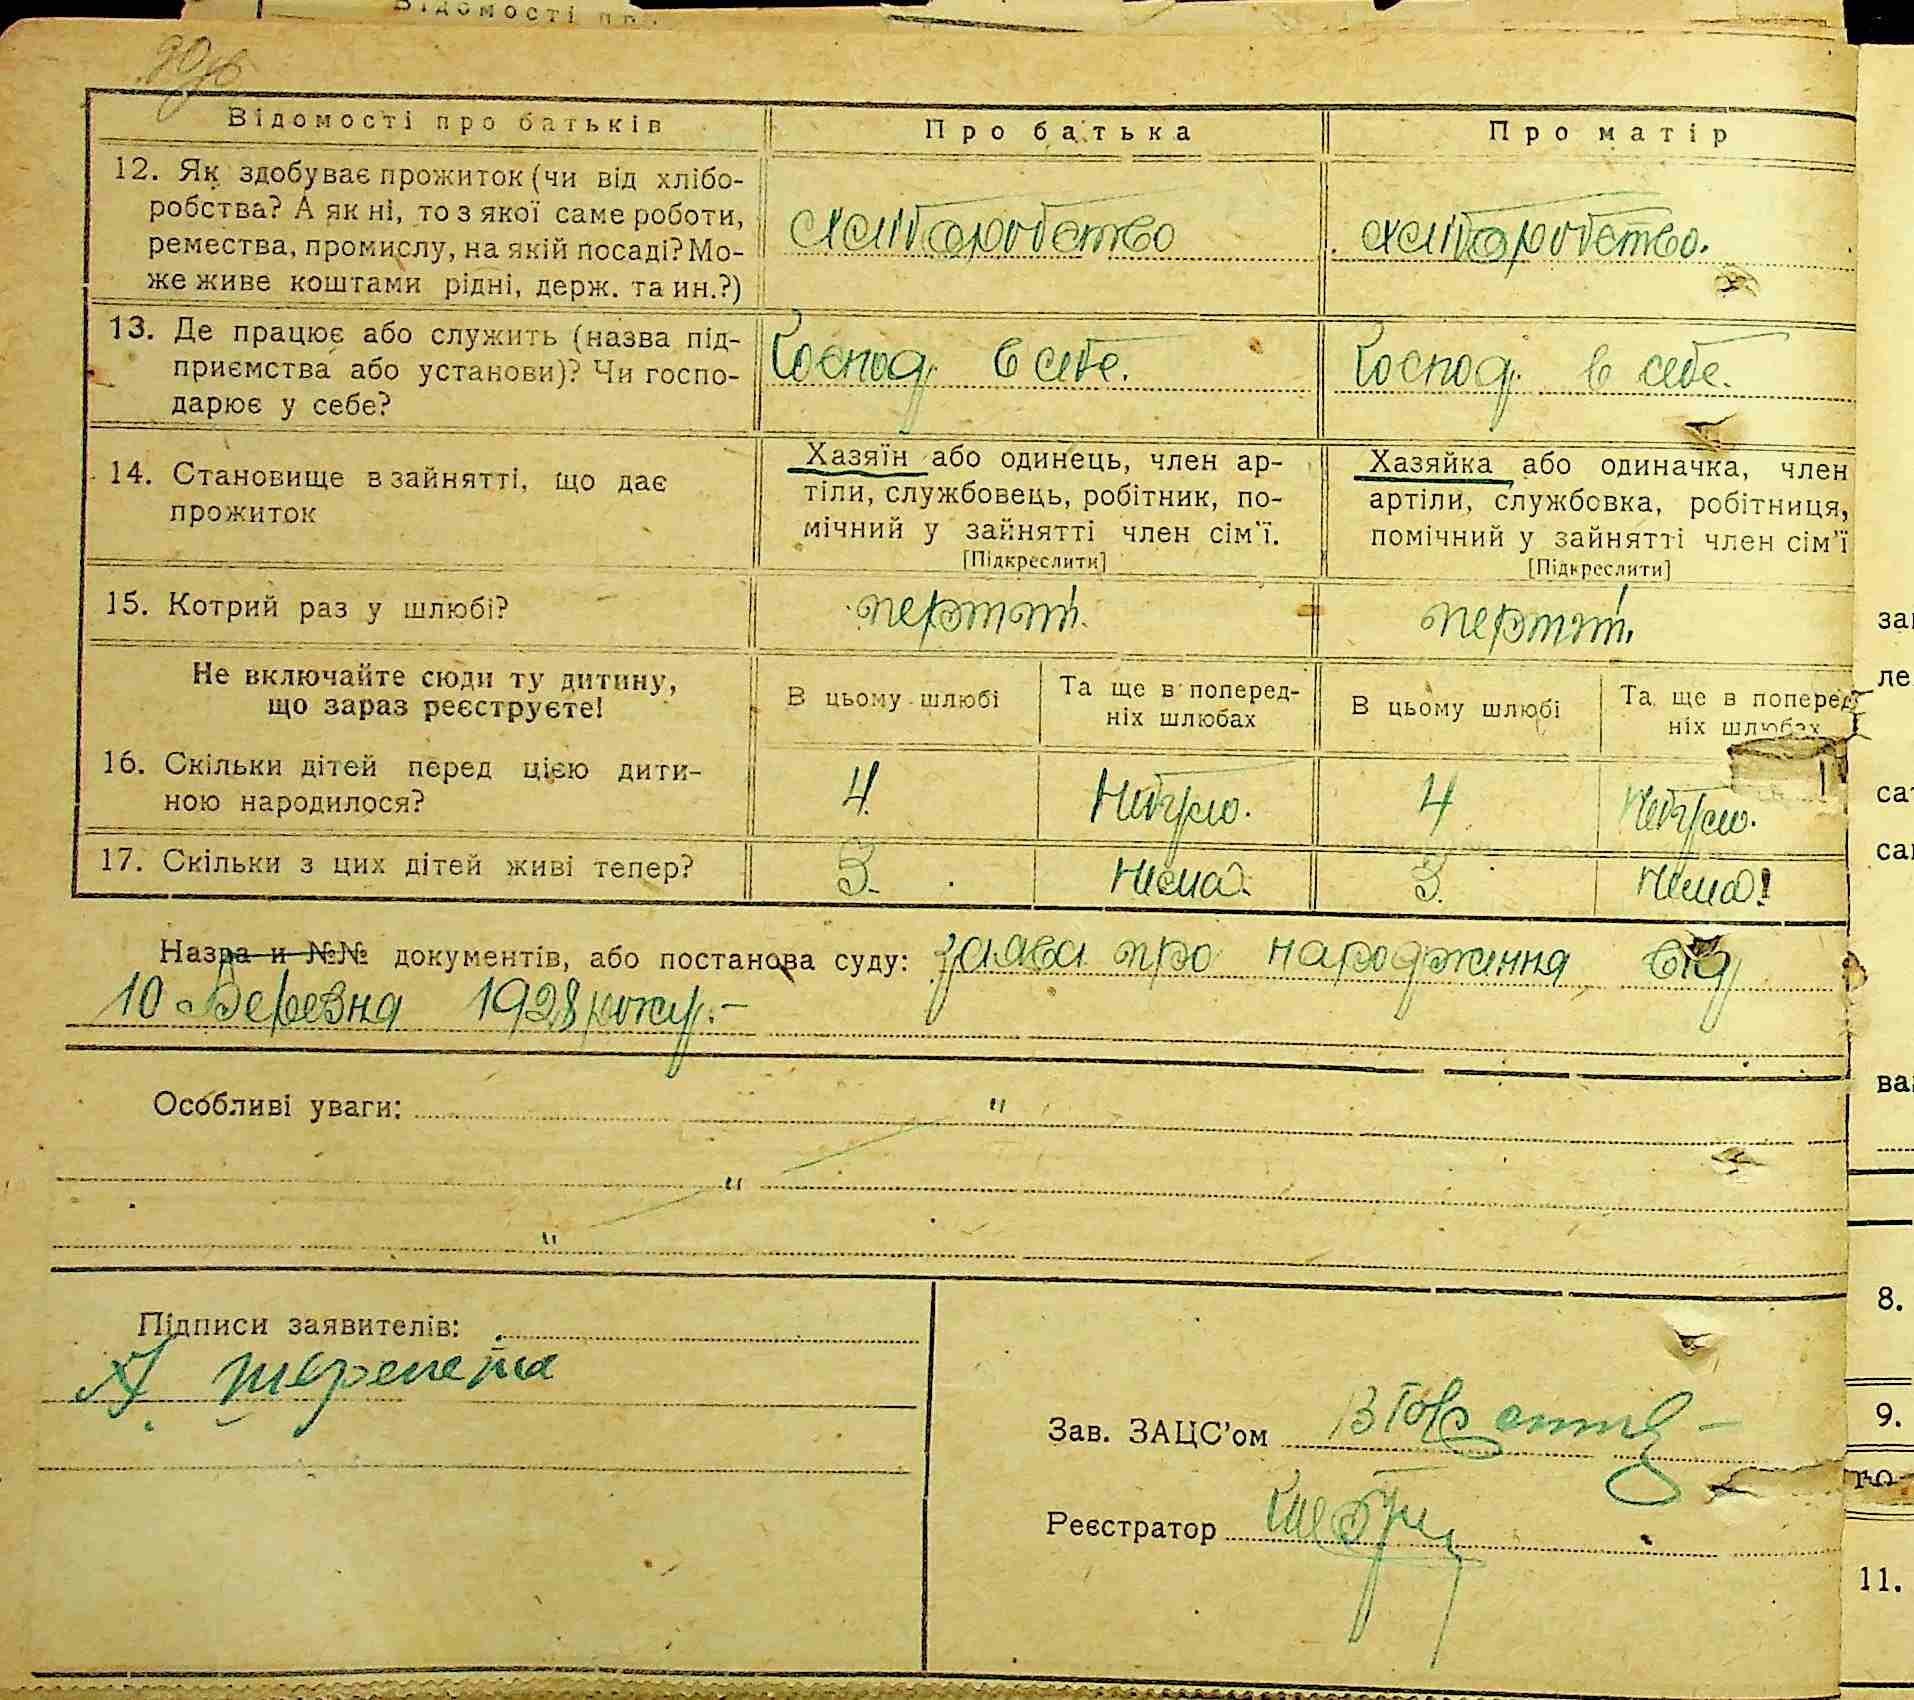 Відомості пр
Відомості про батьків Про батька Про матір
12. Як здобуває прожиток (чи від хлібо-
робства? А як ні, то з якої саме роботи,
ремества, промислу, на якій посаді? Мо-
же живе коштами рідні, держ. та ин.?)
хліборобство хліборобство.
13. Де працює або служить (назва під-
приємства або установи)? Чи госпо-
дарює у себе?
Господ. в себе. Господ. в себе.
14. Становище в зайнятті, що дає
прожиток
Хазяїн або одинець, член ар-
тіли, службовець, робітник, по-
мічний у зайнятті член сім'ї.
[Підкреслити]
Хазяйка або одиначка, член
артіли, службовка, робітниця,
помічний у зайнятті член сім'ї
[Підкреслити]
15. Котрий раз у шлюбі? перший. перший.
Не включайте сюди ту дитину,
що зараз реєструєте!
В цьому шлюбі Та ще в поперед-
ніх шлюбах
В цьому шлюбі Та ще в поперед
ніх шлюбах
16. Скільки дітей перед цією дити-
ною народилося?
4. Небуло. 4 Небуло.
17. Скільки з цих дітей живі тепер? 3. Нема. 3. Нема!
Назва и №№ документів, або постанова суду: заява про народження від
10 Березня 1928 року.-
Особливі уваги: "
"
"
Підписи заявителів:
А Шерепета
Зав. ЗАЦС'ом
Реєстратор
за
ле
са
са
ва
8.
9.
11.